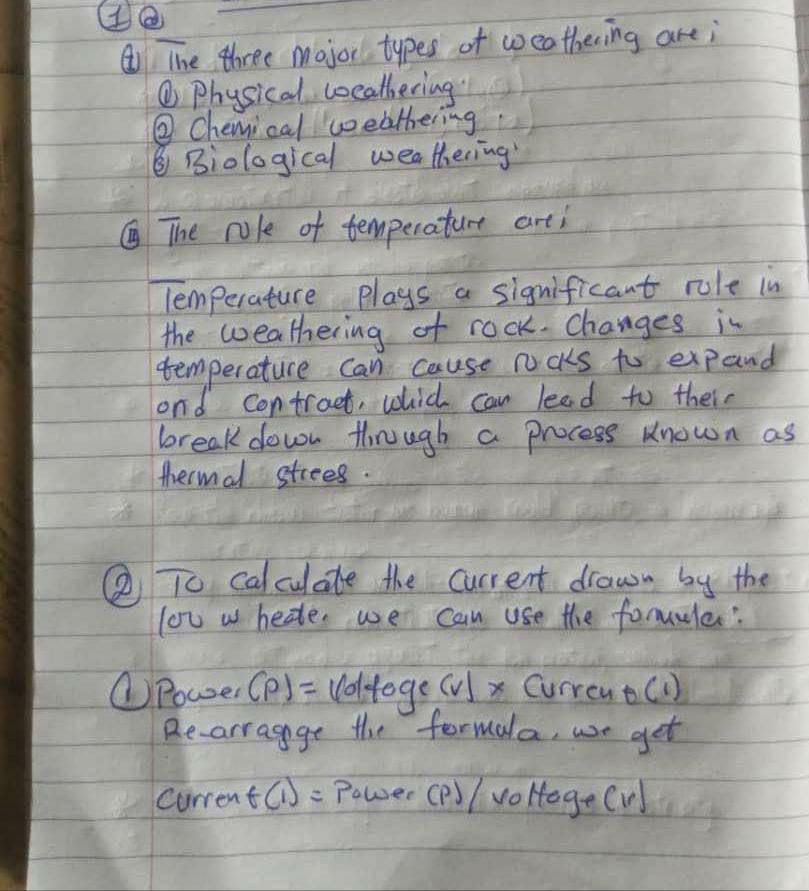 ① ⓐ
ⓘ The three major types of weathering are;
① Physical weathering.
② Chemical weathering.
③ Biological weathering.
ⓘⓘ The role of temperature are;
Temperature plays a significant role in
the weathering of rock. Changes in
temperature can cause rocks to expand
and contract, which can lead to their
breakdown through a process known as
thermal strees.
② To calculate the current drawn by the
100 w heater we can use the formula:
① Power (P) = Voltage (V) × Current (I)
Re-arragnge the formula, we get
Current (I) = Power (P) / voltage (V)